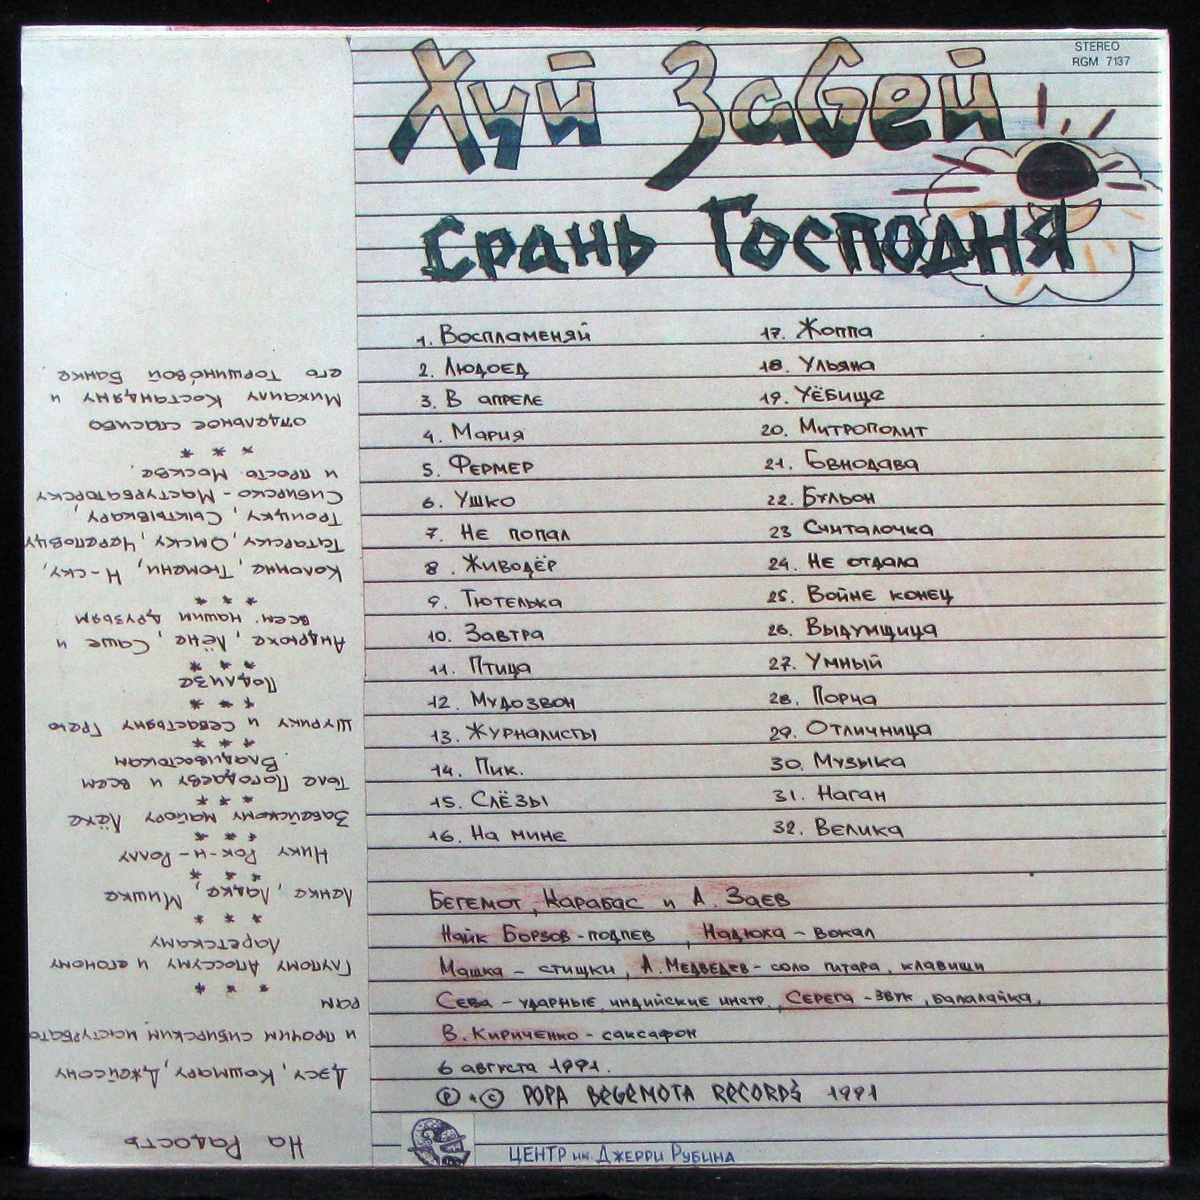 STEREO
RGM 7137
Хуй Забей
Срань Господня
1. Воспламеняй
2. Людоед
3. В апреле
4. Мария
5. Фермер
6. Ушко
7. Не попал
8. Живодёр
9. Тютелька
10. Завтра
11. Птица
12. Мудозвон
13. Журналисты
14. Пик.
15. Слёзы
16. На мине
17. Жоппа
18. Ульяна
19. Уёбище
20. Митрополит
21. Гвнодава
22. Бульон
23 Считалочка
24. Не отдала
25. Войне конец
26. Выдумщица
27. Умный
28. Порча
29. Отличница
30. Музыка
31. Наган
32. Велика
Бегемот, Карабас и А. Заев
Найк Борзов - подпев, Надюха - вокал
Машка - стишки, А. Медведев - соло гитара, клавищи
Сева - ударные, индийские инстр. Серега - звук, балалайка,
В. Кириченко - саксафон
6 августа 1991.
Ⓟ + © POPA BEGEMOTA RECORDS 1991
ЦЕНТР им. Джерри Рубина
На Радость
Дэсу, Кошмару, Джейсону
и прочим сибирским мастурбато
рам
* * *
Глупому Апоссуму и егоному
Ларетскому
* * *
Ленке, Ладке, Мишке
* * *
Нику Рок-н-Роллу
* * *
Забейскому майору Лёхе
* * *
Толе Погодаеву и всем
Владивостокам
* * *
Шурику и Севастьяну Грею
* * *
Подлизе
* * *
Андрюхе, Лёне, Саше и
всем нашим друзьям
* * *
Коломне, Тюмени, Н-ску,
Татарску, Омску, Череповцу
Троицку, Сыктывкару,
Сибирско-Мастурбаторску
и просто Москве.
* * *
отдельное спасибо
Михаилу Костандяну и
его Торшиновой Банке